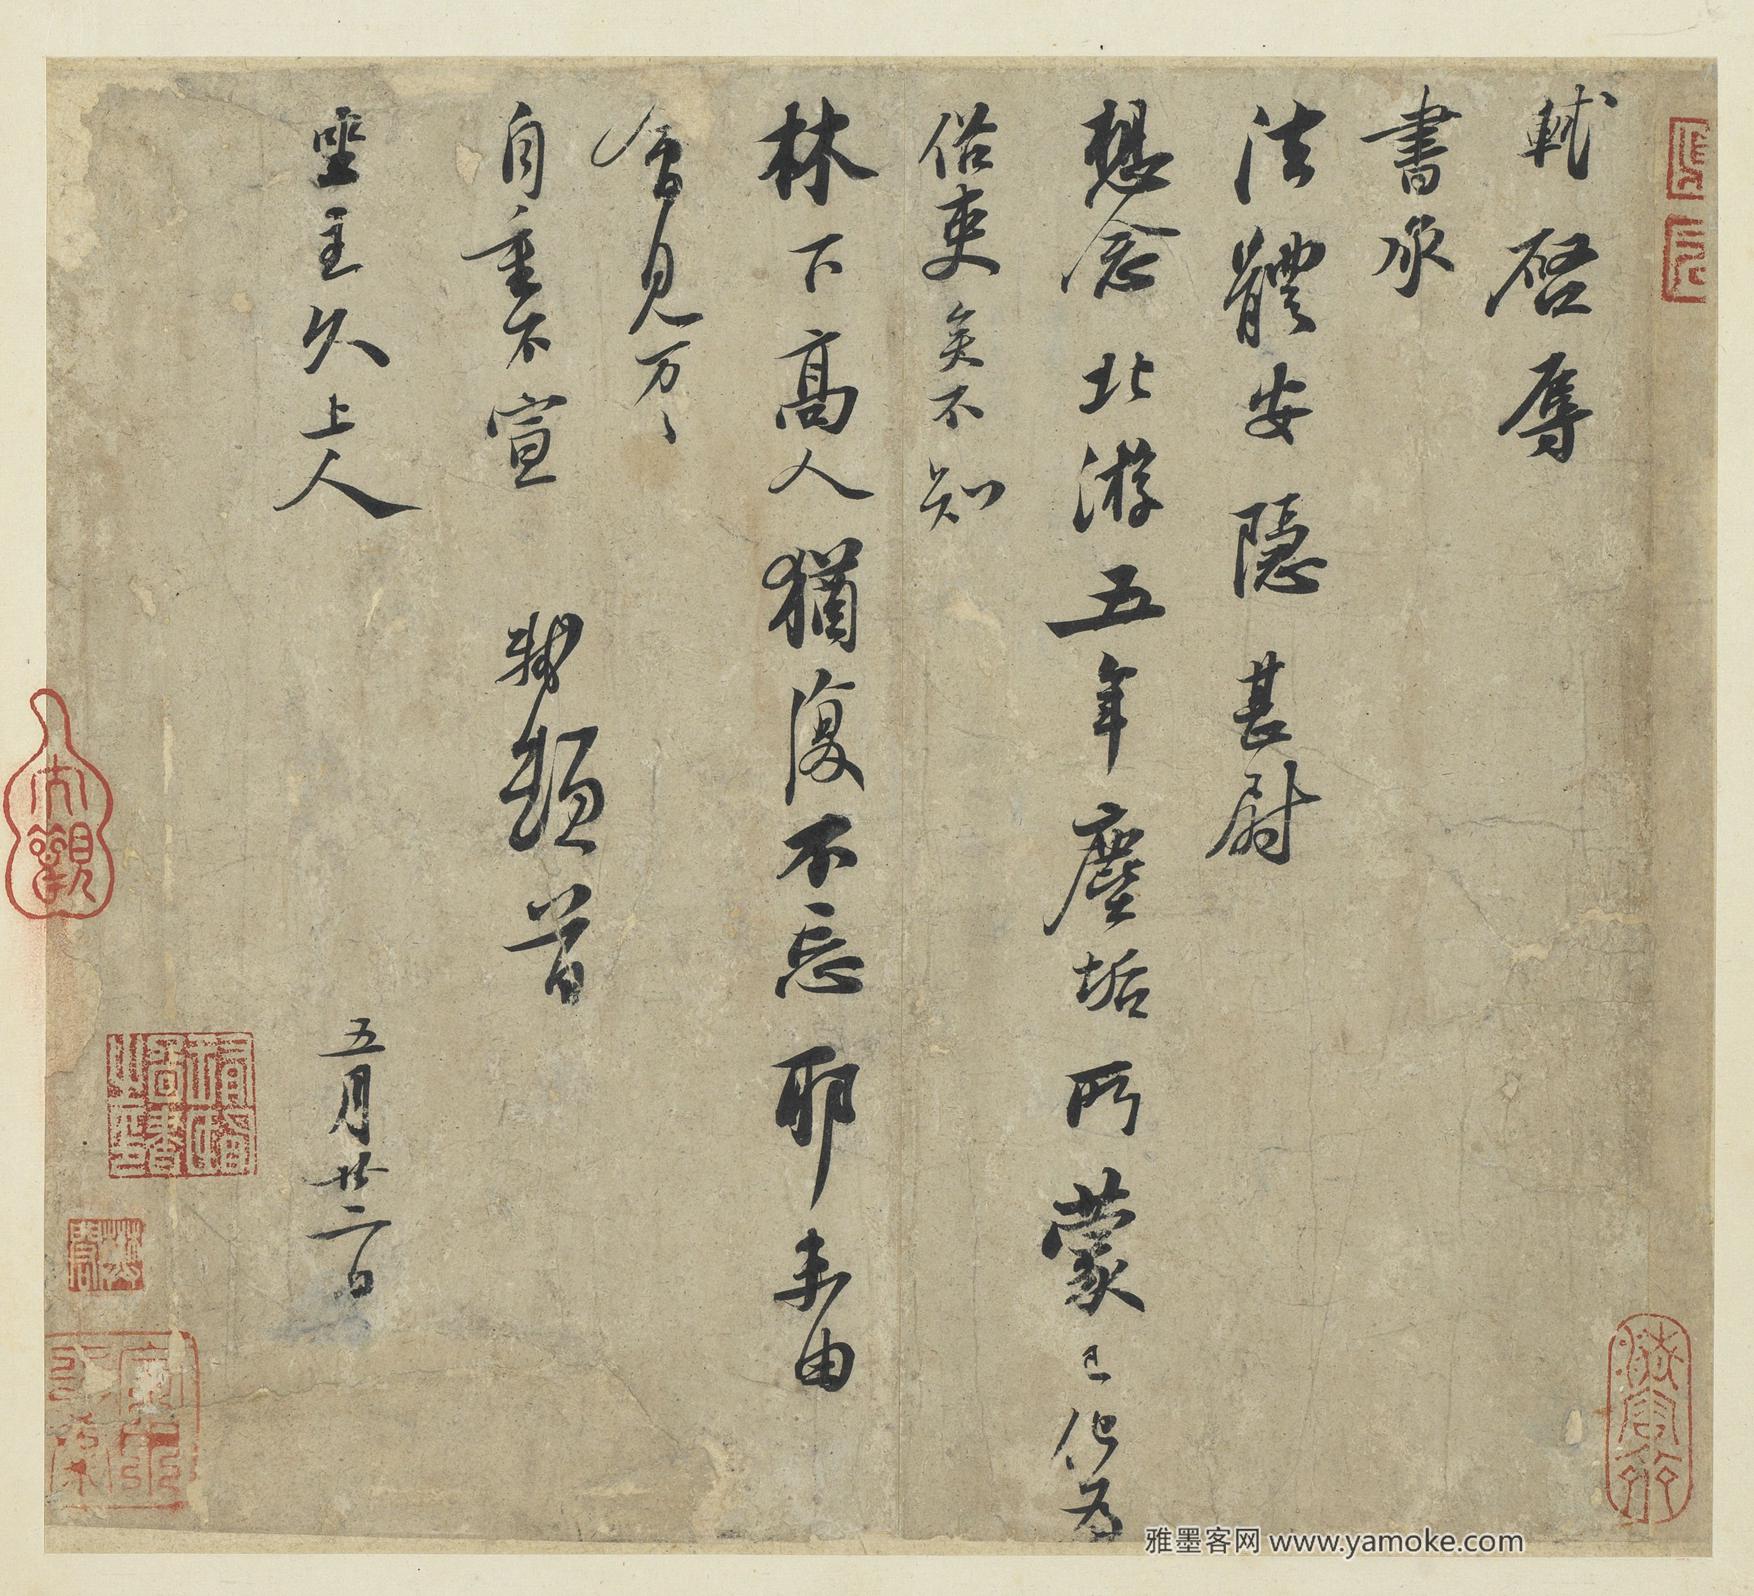 軾啓辱
書承
法體安隱甚尉
想念北游五年塵垢所蒙已化為
俗吏矣不知
林下高人猶復不忘耶未由
會見万〻
自重不宣 軾頓首
坐主久上人 五月廿二日
大觀
雅墨客网 www.yamoke.com